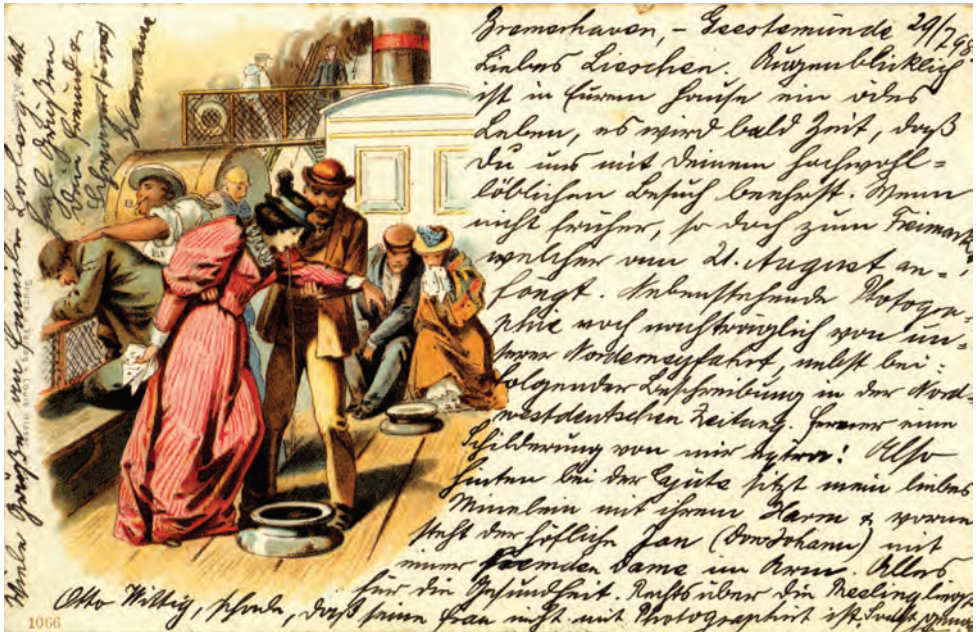 Bremerhaven, - Geestemünde 29/7 98
Liebes Lieschen. Augenblicklich
ist in Eurem Hause ein ödes
Leben, es wird bald Zeit, daß
Du uns mit Deinem hochwohl=
löblichen Besuch beehrst. Wenn
nicht früher, so doch zum Freimarkt,
welcher am 21. August an=
fängt. Nebenstehende Photogra=
phie noch nachträglich von un=
serer Norderneyfahrt, nebst bei=
folgender Beschreibung in der Nord=
westdeutschen Zeitung. Ferner eine
Schilderung von mir extra! Also
hinten bei der Cajüte sitzt mein liebes
Minelein mit ihrem Harm & vorne
steht der höfliche Jan (Don Johann) mit
einer fremden Dame im Arm. Alles
für die Gesundheit. Rechts über die Reeling
Otto Wittig, schade, daß seine Frau nicht mit Photographirt ist, sonst
Viele Grüße an Familie
Dein Freund
Hermann
1066